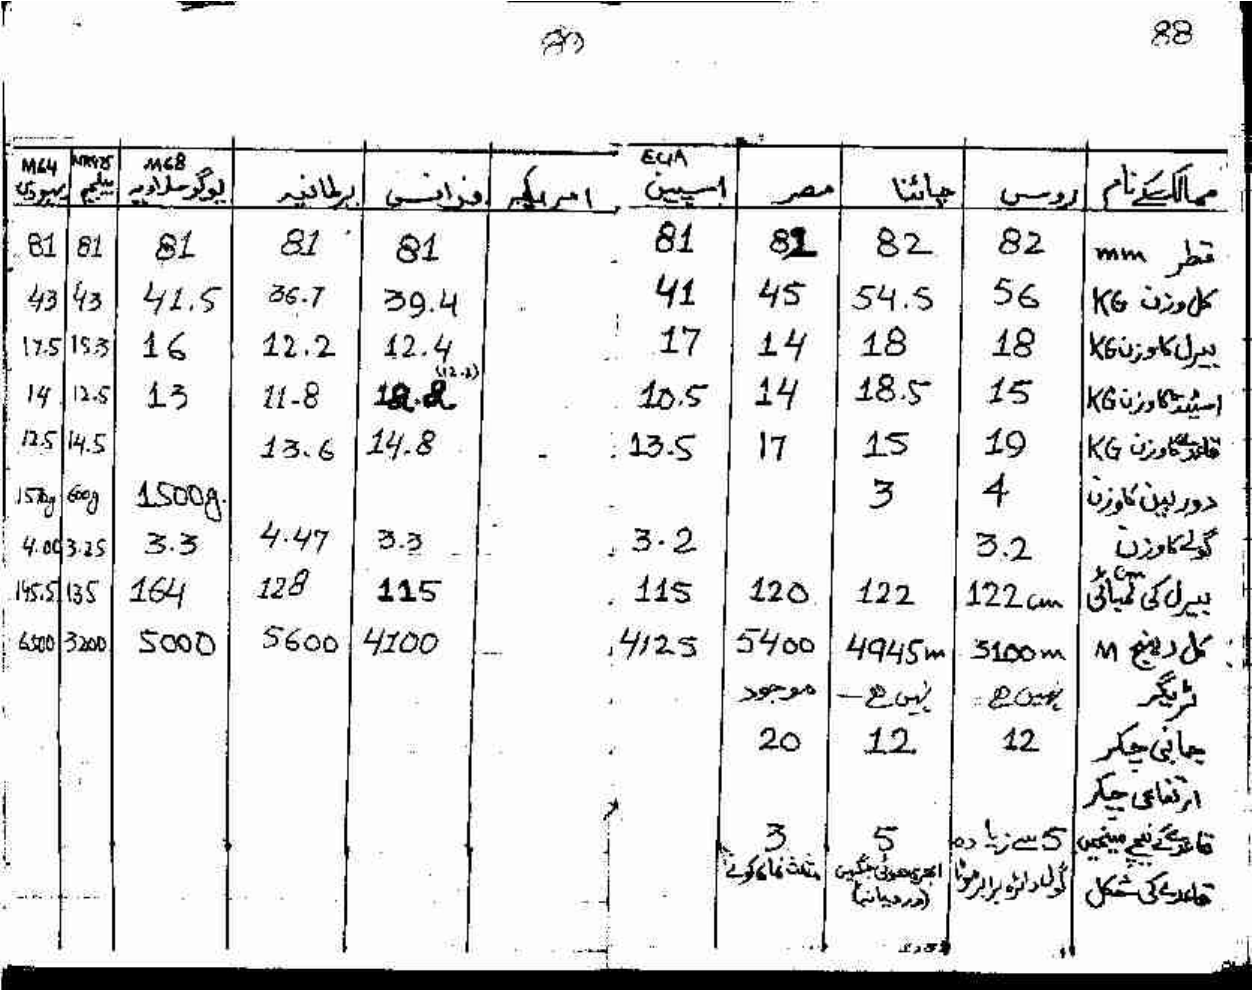 88
ممالک کے نام روس چائنا مصر اسپین ECIA امریکہ فرانس برطانیہ یوگوسلاویہ M68 بیلجیم NR475 یہودی M64
قطر mm 82 82 82 81 81 81 81 81 81
کل وزن KG 56 54.5 45 41 39.4 36.7 41.5 43 43
بیرل کا وزن KG 18 18 14 17 12.4 12.2 16 15.3 17.5
اسٹینڈ کا وزن KG 15 18.5 14 10.5 (12.2) 11-8 13 12.5 14
قاعدے کا وزن KG 19 15 17 13.5 14.8 13.6 14.5 12.5
دوربین کا وزن 4 3 1500g. 600g
گولے کا وزن 3.2 3.2 3.3 4.47 3.3 3.25 4.00
بیرل کی لمبائی cm 122cm 122 120 115 115 128 164 135 145.5
کل رینج M 3100m 4945m 5400 4125 4100 5600 5000 3200 6500
ٹریگر نہیں ہے نہیں ہے موجود
چابی چکر 12 12 20
ارتفاعی چکر
قاعدے کے نیچے میخیں 5 سے زیادہ 5 3
قاعدے کی شکل گول دائرہ برابر موٹا ابھری ھوئی جگہیں (درمیانہ) مثلث نما کونے